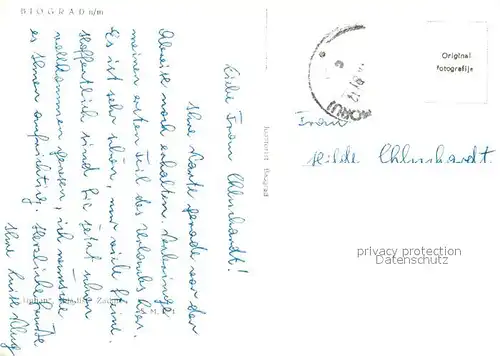 BIOGRAD n/m
Liebe Frau Ehlenhardt!
Ihre Karte gerade vor der
Abreise noch erhalten. Verbringe
meinen ersten Teil des Urlaubes hier.
Es ist sehr schön, nur viele Steine.
Hoffentlich sind Sie jetzt schon
vollkommen genesen, ich wünsche
es Ihnen aufrichtig. Herzliche Grüße
Ihre Luise
Original
fotografija
Frau
Hilde
privacy protection
Datenschutz